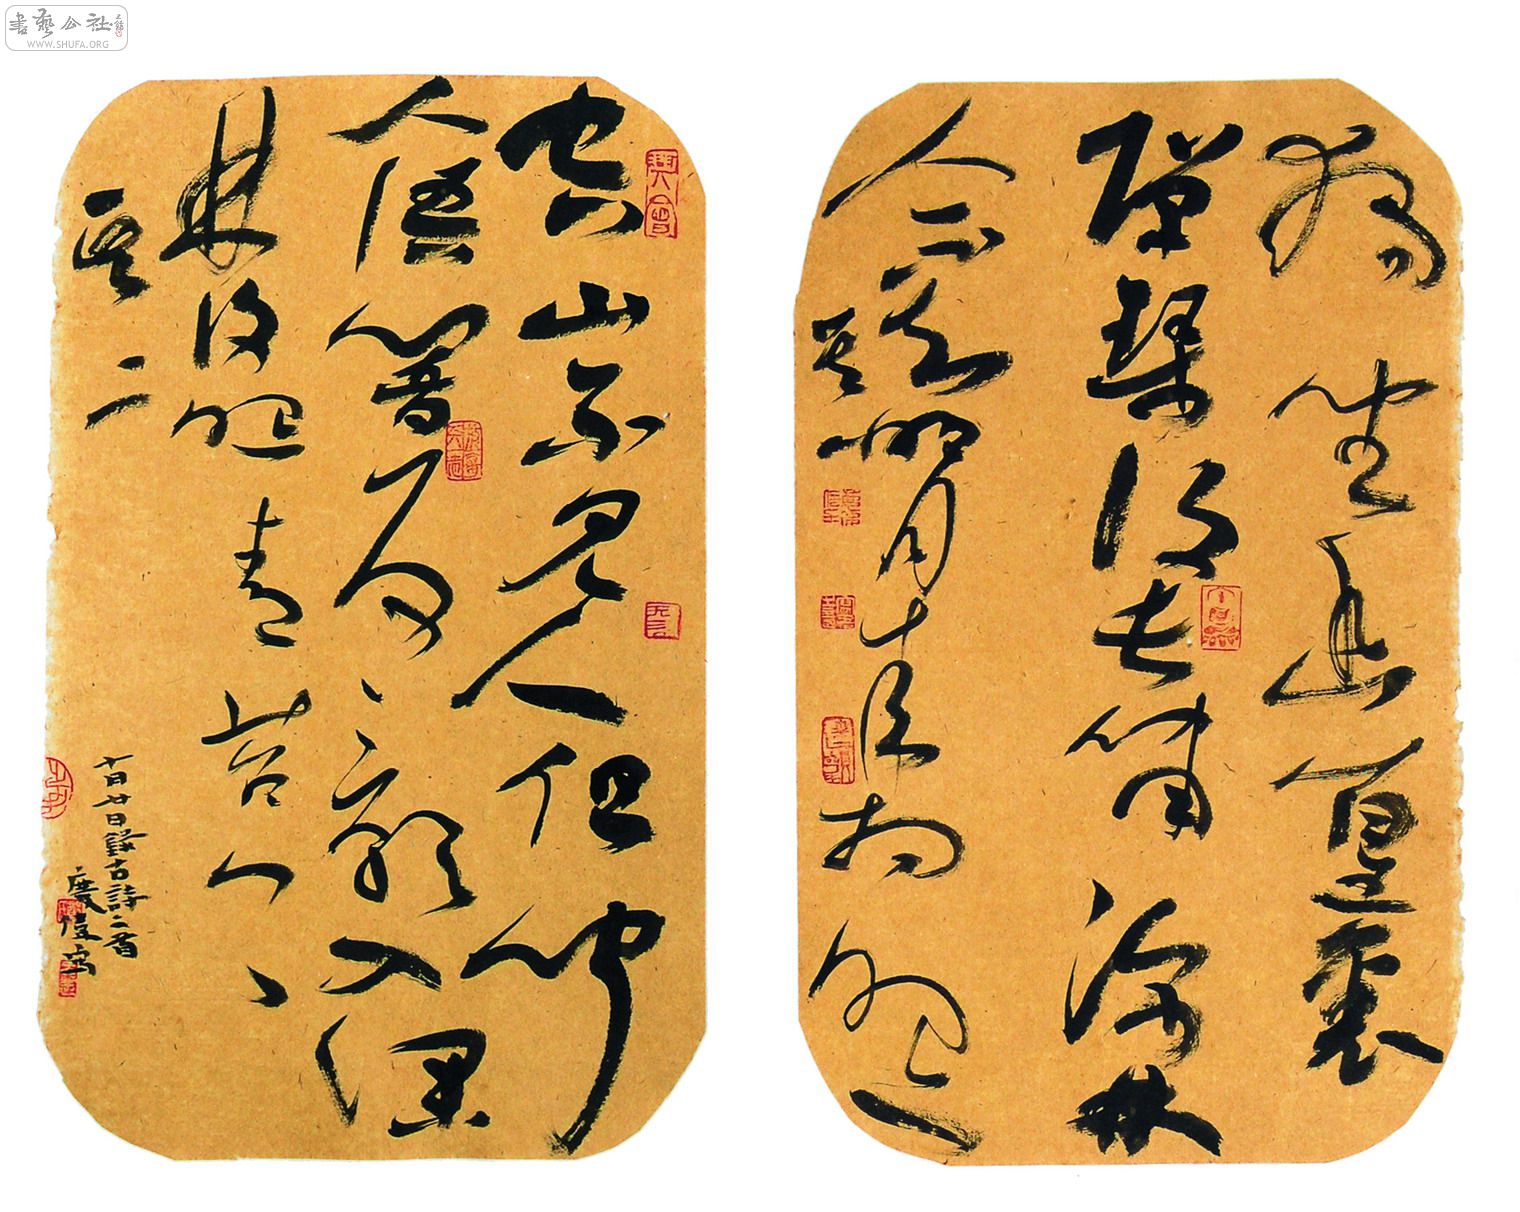 書藝公社
WWW.SHUFA.ORG
獨坐幽篁裏
彈琴復長嘯深林
人不知明月來相照
其一
空山不見人但聞
人語響返景入深
林復照青苔上
其二
十月廿日錄古詩二首